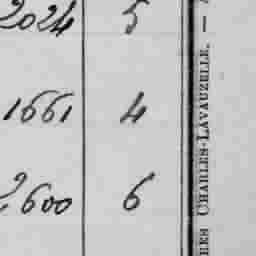 2024 5
1661 4
2600 6
RES CHARLES-LAVAUZELLE. —